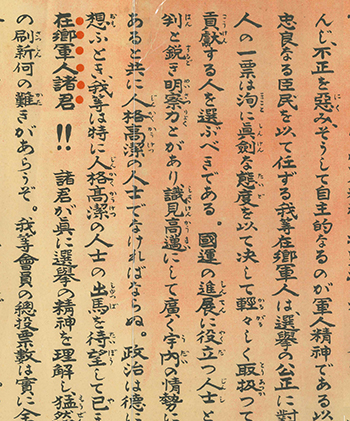 んじ、不正を惡みそうして自主的なるのが軍人精神である以
忠良なる臣民を以て任ずる我等在鄕軍人は、選擧の公正に對
人の一票は洵に眞劍な態度を以て決して輕々しく取扱つて
貢獻する人を選ぶべきである。國運の進展に役立つ人士と
判と銳き明察力とがあり識見高邁にして廣く宇内の情勢に
あると共に人格高潔の人士でなければならぬ。政治は德に
想ふとき、我等は特に人格高潔の人士の出馬を待望して已ま
在鄕軍人諸君!! 諸君が眞に選擧の精神を理解し猛然
の刷新何の難きがあらうぞ。我等會員の總投票數は實に全